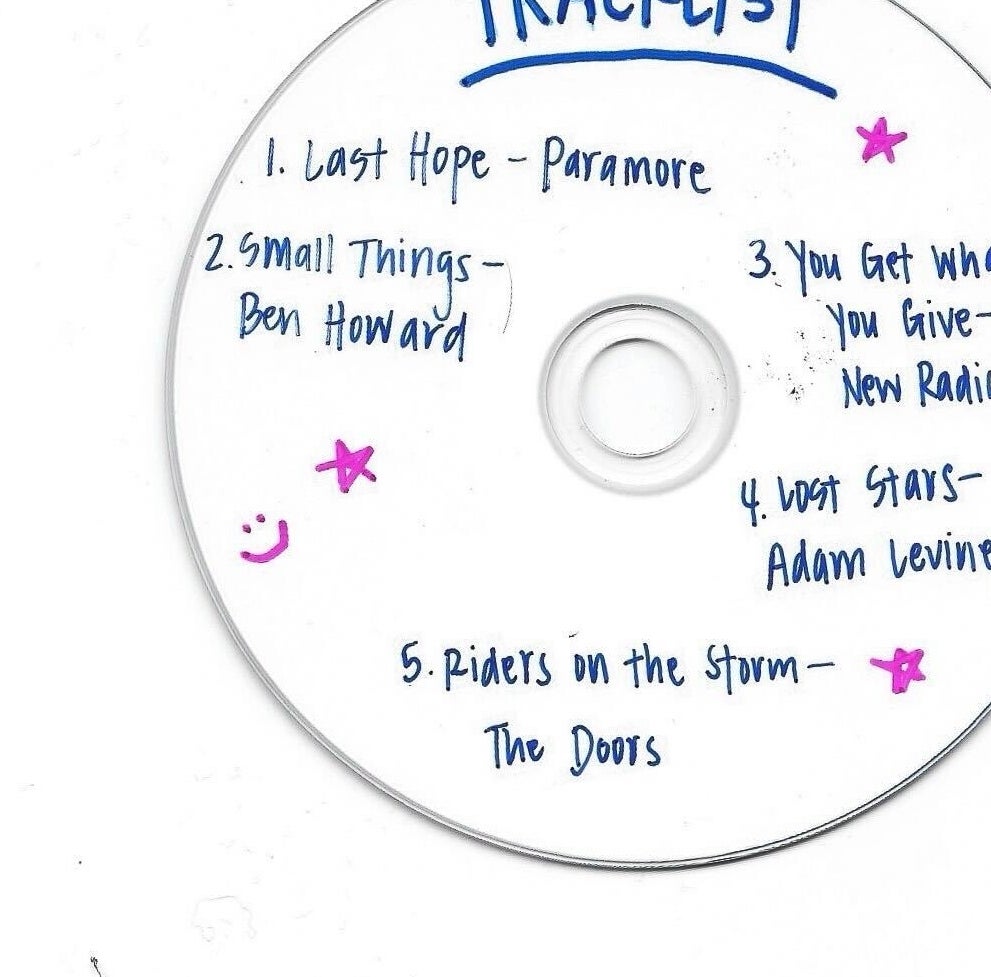 TRACKLIST
1. Last Hope - Paramore
2. Small Things -
Ben Howard
3. You Get Wha
You Give-
New Radi
4. Lost Stars-
Adam Levine
5. Riders on the Storm -
The Doors